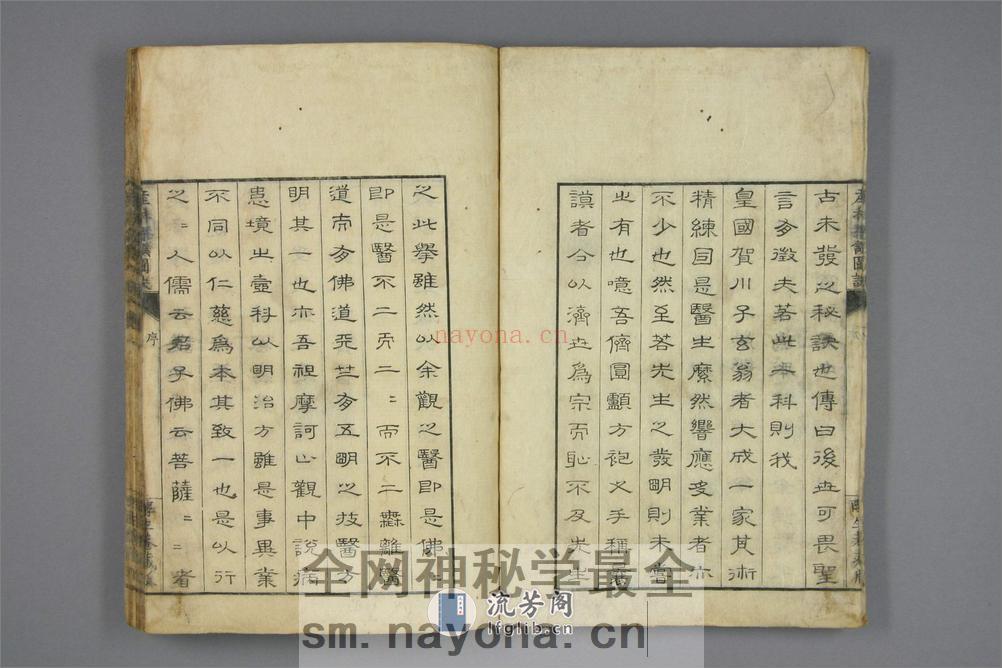 古未發之秘訣也傳曰後世可畏聖
言有徵夫若此本科則我
皇國賀川子玄翁者大成一家其術
精練回是醫生縻然響應受業者亦
不少也然至若先生之發明則未曾
之有也噫吾儕圓顱方袍叉手稱
謨者今以濟世為宗而恥不及先生
之此擧雖然以余觀之醫即是佛〻
即是醫不二而二〻而不二無離醫
道而有佛道茫竺有五明之技醫方
明其一也亦吾祖摩訶止觀中說病
患境出壹科以明治方雖是事異業
不同以仁慈為本其致一也是以行
之〻人儒云君子佛云菩薩〻者
序
nayona.cn
全网神秘学最全
流芳阁
lfglib.cn
sm.nayona.cn